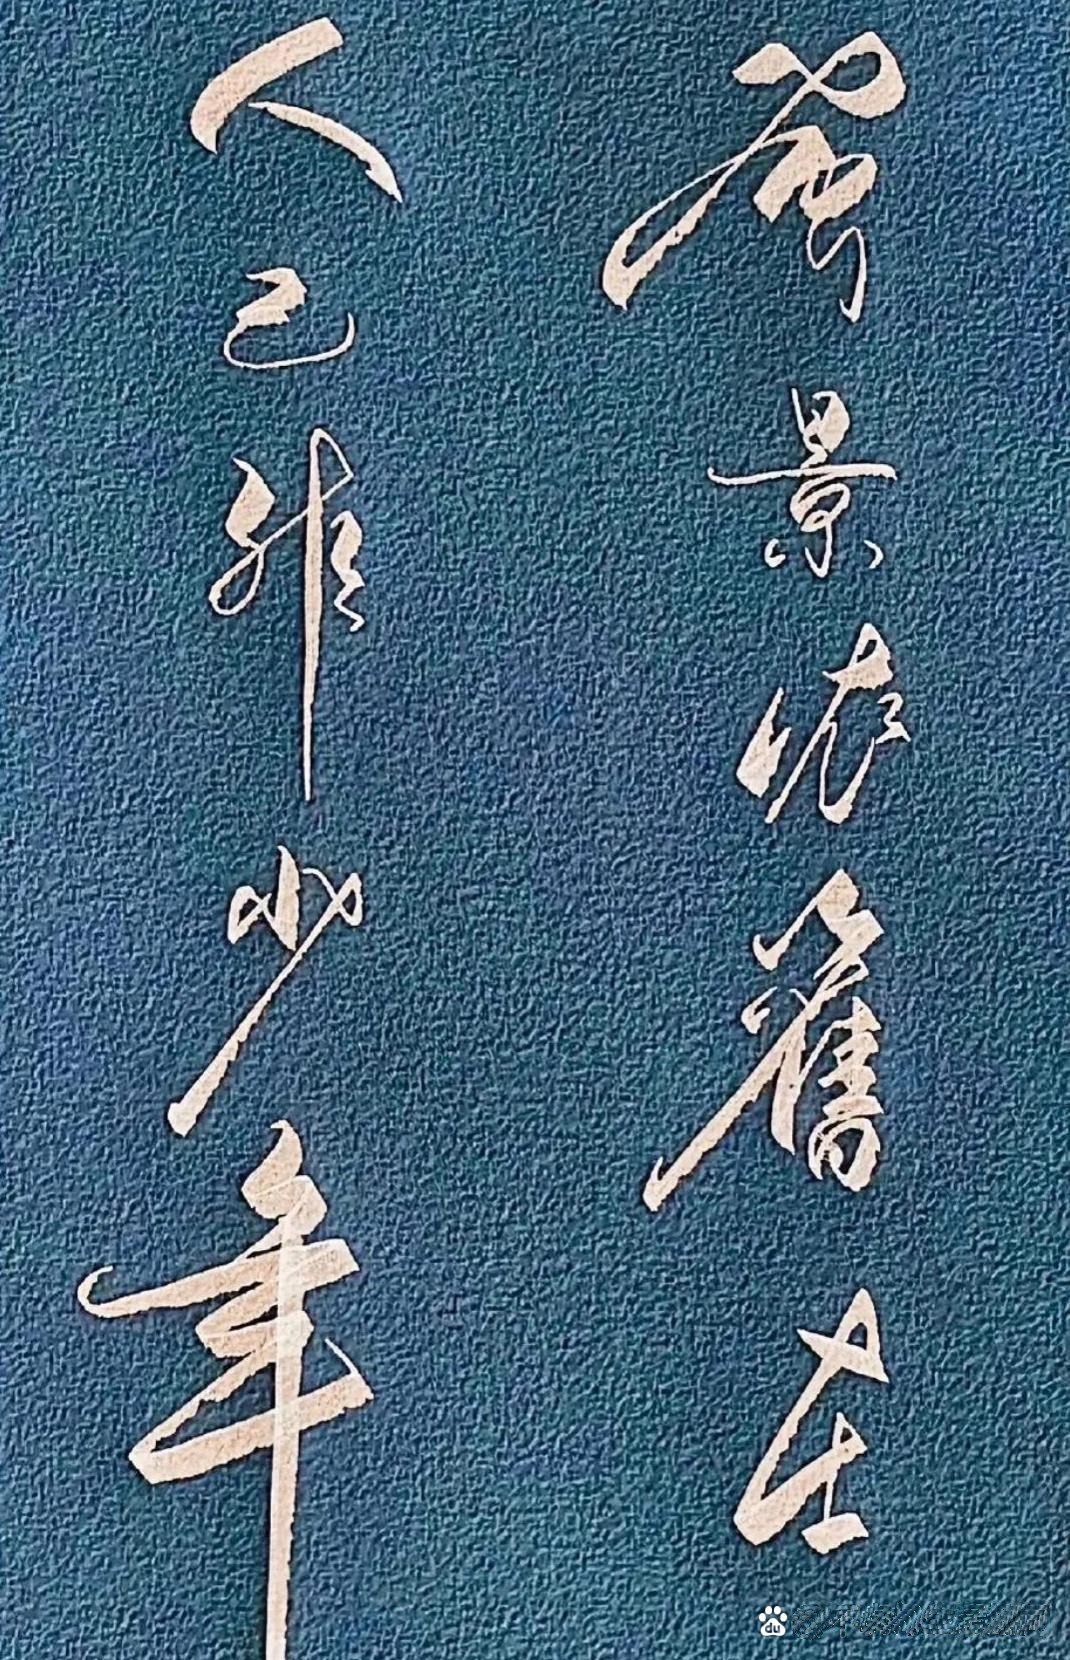 景依舊在
人已非少年